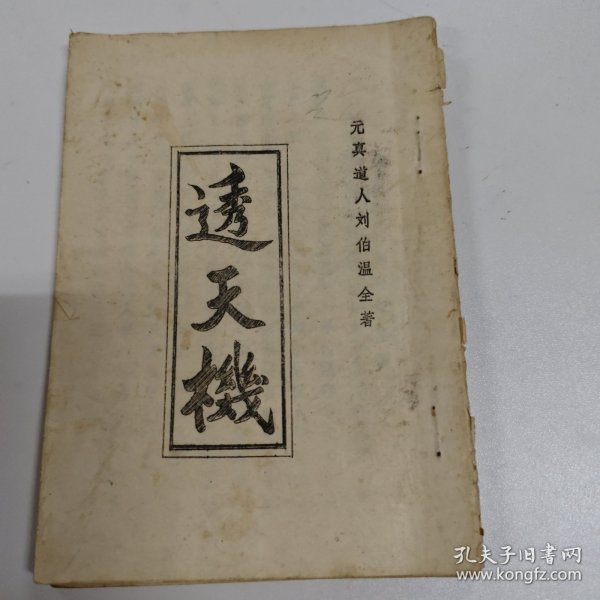 元真道人刘伯温全著
透天機
孔夫子旧书网
www.kongfz.com